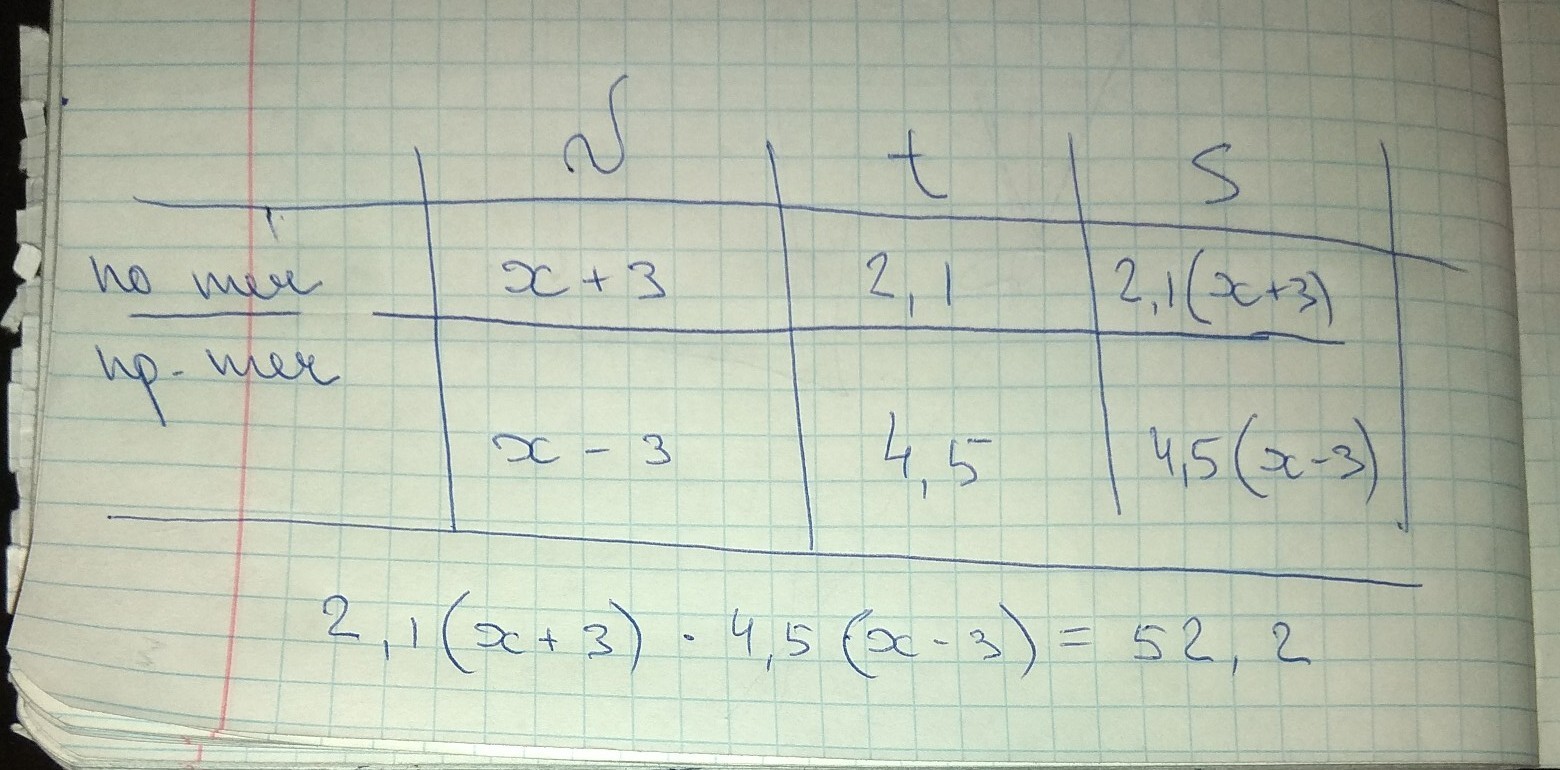 v t S
по теч x + 3 2,1 2,1(x+3)
пр. теч
x - 3 4,5 4,5(x-3)
2,1(x+3) · 4,5(x-3) = 52,2